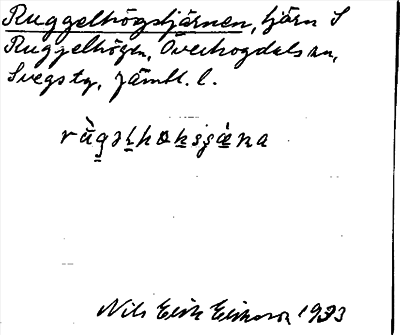 Ruggelhögstjärnen, tjärn S
Ruggelhögen, Överhogdals sn,
Svegs tg, Jämtl. l.
Nils Erik Eriksson 1933